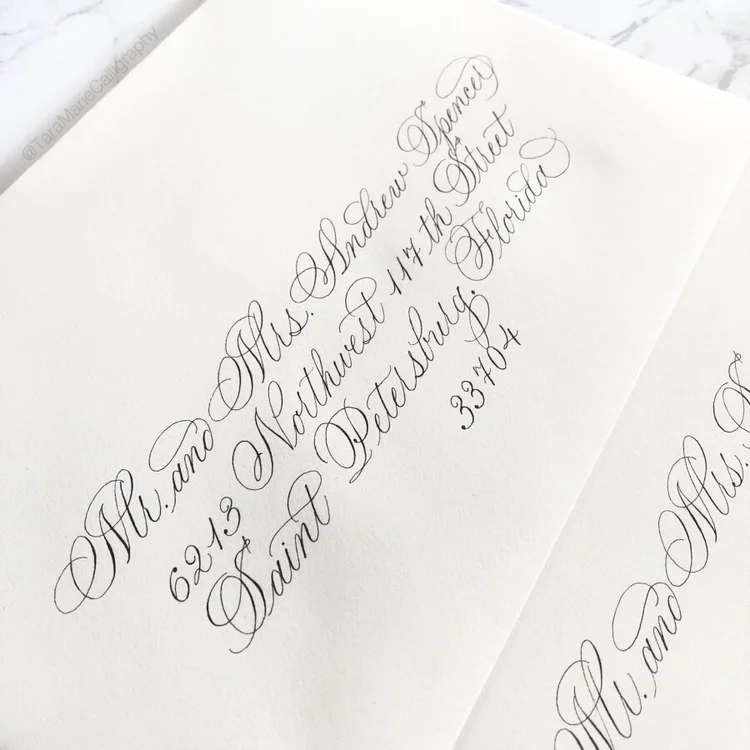 @TaraMarieCalligraphy
Mr. and Mrs. Andrew Spencer
6213 Northwest 117th Street
Saint Petersburg, Florida
33704
Mr. and Mrs.